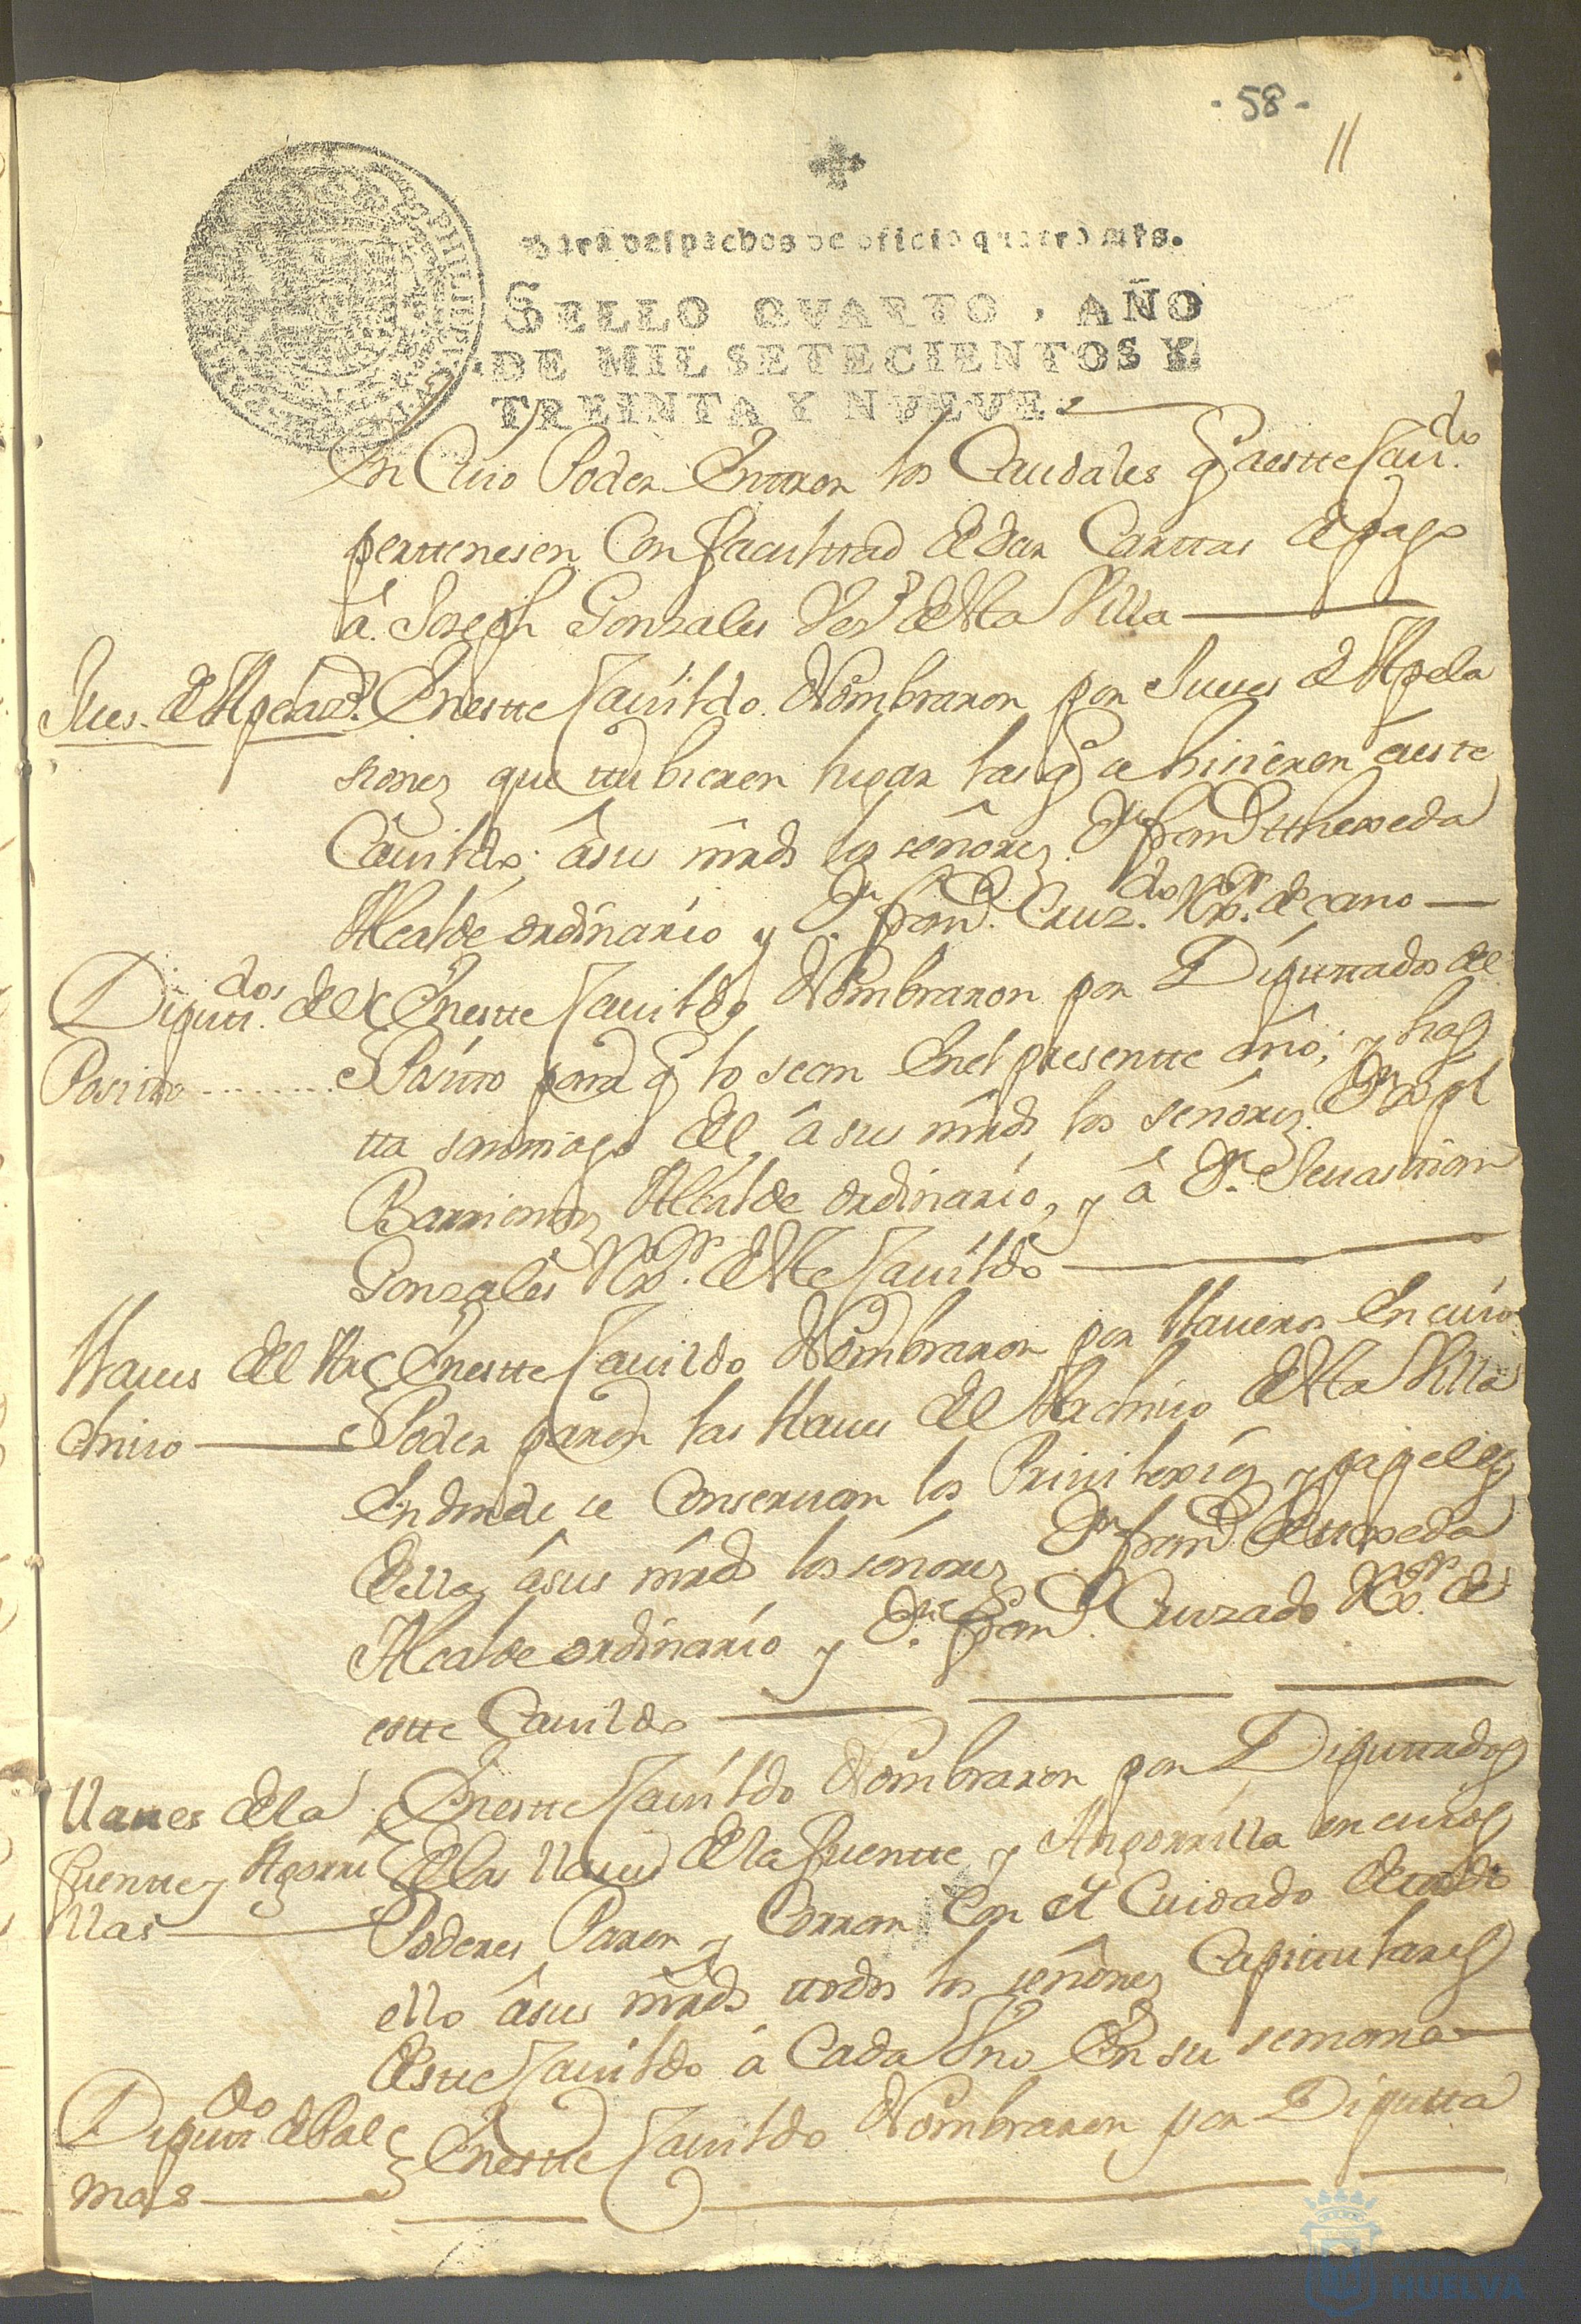 - 58 -
11
Para despachos de oficio quatro mrs.
SELLO QVARTO, AÑO
DE MIL SETECIENTOS Y
TREINTA Y NVEVE.
En Cuio Poder Enttren los Caudales q aestte Cav.do
perttenesen Con facultтad de dar Carttas de pago
â Joseph Gonzales Vez.º destta Villa
Jues. de Apelaz.s Enestte Cavildo Nombraron por Jueses de Apela
siones que ttubieren lugar las q se hisieren en este
Cavildo; âsus mrds los señores Dn. franco ttexeda
Alcalde ordinario y Dn. franco. Cruz.do Rxor. decano
Diputt.dos del Enestte Cavildo Nombraron por Diputtados del
Positto Positto para q lo sean Enel presentte año; y has
tta santtiago del â sus mrds los señores Dn
Barrientos Alcalde ordinario, y â Dn. Sevasttian
Gonzales Rxor. destte Cavildo
Llaves del Ar Enestte Cavildo Nombraron por llaveros En cuio
chivo Poder paren las llaves del Archivo destta Villa
En donde se Conservan los Privilexios y papeles
della, âsus mrds los señores Dn franco de ttexeda
Alcalde ordinario y Dn. franco. Cruzado Rxor. de
estte Cavildo
Llaves de la Enestte Cavildo Nombraron por Diputtados
fuentte y Agorri de las llaves de la fuentte y Angorrilla en cuios
llas Poderes Paren y Corran Con el Cuidado de ttodo
ello âsus mrds ttodos los señores Capittulares
destte Cavildo â Cada Vno En su semana
Diputt.do de Pal Enestte Cavildo Nombraron por Diputta
mas
HUELVA